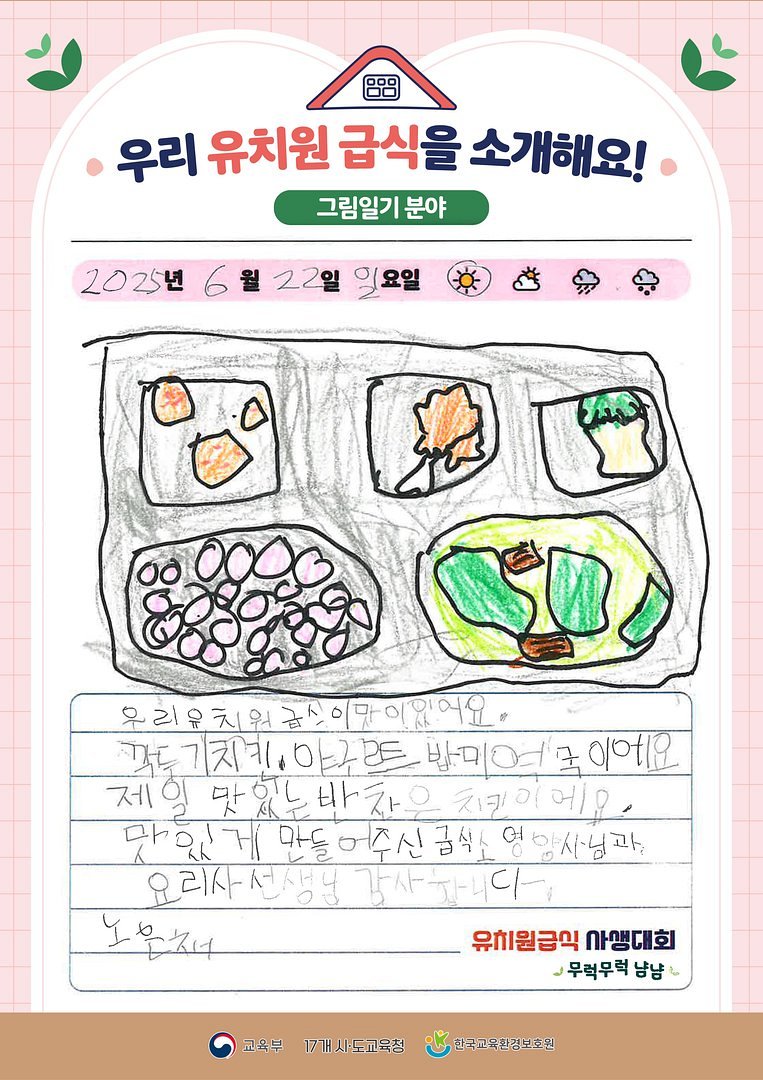 우리 유치원 급식을 소개해요!
그림일기 분야
2025년 6월 22일 일요일
우리유치원 급식이맛이있어요.
깍두기치킨, 야구르트 밥미역국이에요
제일 맛있는반찬은 치킨이에요.
맛있게 만들어주신 급식소 영양사님과
요리사선생님 감사합니다.
노윤서
유치원급식 사생대회
무럭무럭 냠냠
교육부 17개 시·도교육청 한국교육환경보호원